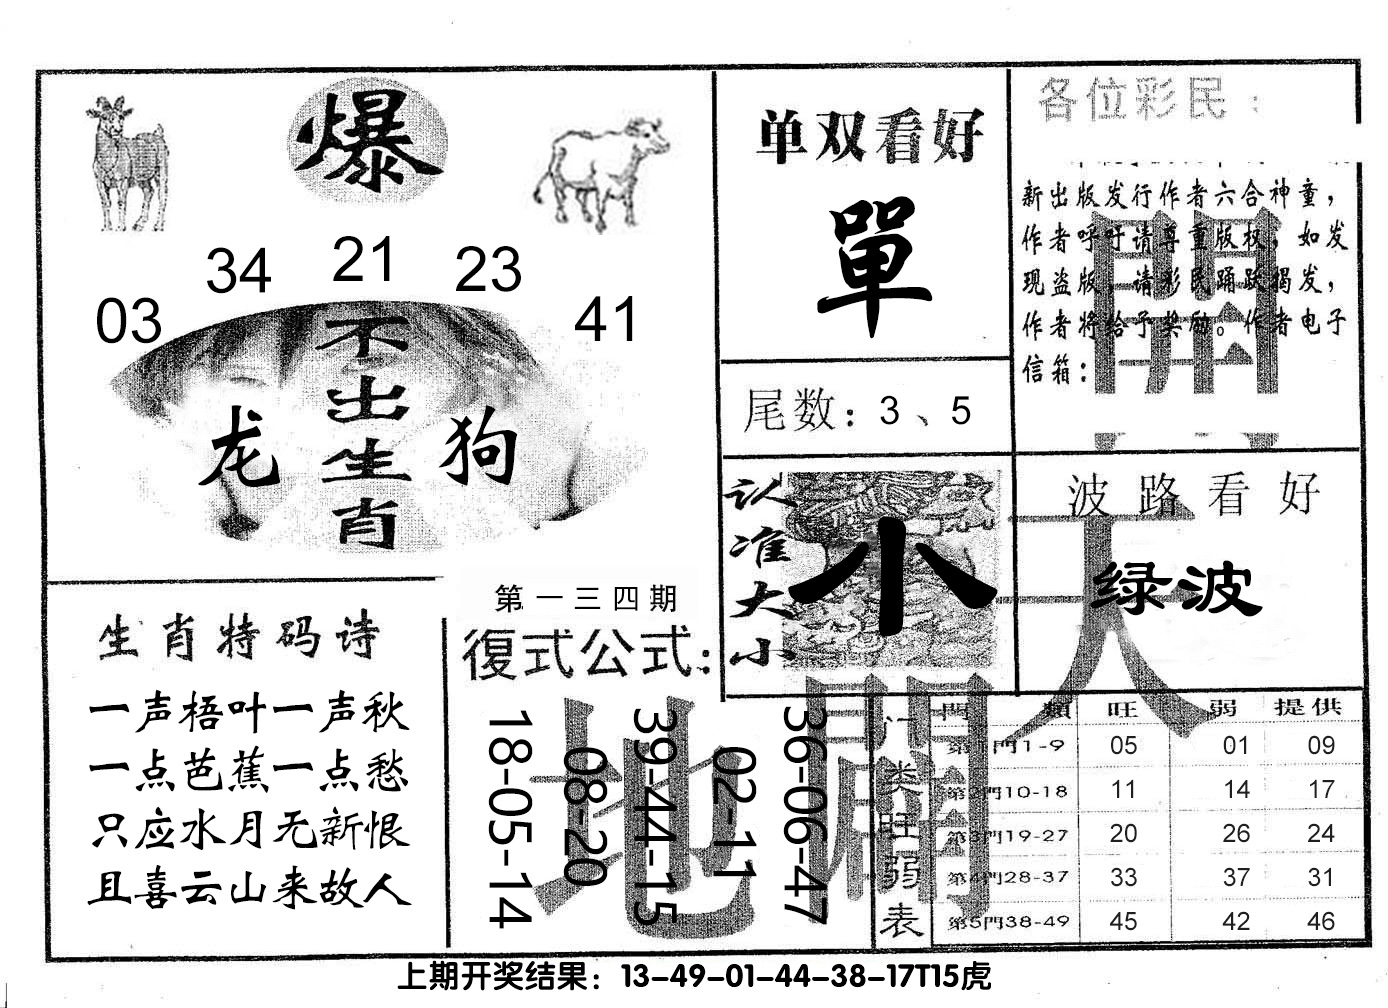 爆
03 34 21 23 41
不出生肖
龙 狗
单双看好
單
尾数：3、5
各位彩民：
新出版发行作者六合神童，
作者呼吁请尊重版权，如发
现盗版，请彩民踊跃揭发，
作者将给予奖励。作者电子
信箱：
認准大小
小
波路看好
绿波
天開
地
生肖特码诗
一声梧叶一声秋
一点芭蕉一点愁
只应水月无新恨
且喜云山来故人
第一三四期
復式公式：
18-05-14
08-20
39-44-15
02-11
36-06-47
门类旺弱表
門類 旺 弱 提供
第1門1-9 05 01 09
第2門10-18 11 14 17
第3門19-27 20 26 24
第4門28-37 33 37 31
第5門38-49 45 42 46
上期开奖结果：13-49-01-44-38-17T15虎